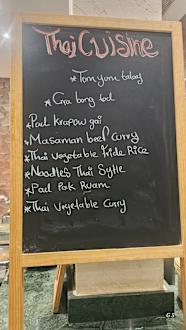 Thai CUISINE
*Tom yum talay
*Gra bong tod
*Pad Krapow gai
*Masaman beef curry
*Thai vegetable Fride Rice
*Noodles Thai Sytle
*Pad Pak Ruam
*Thai Vegetable Curry
GS